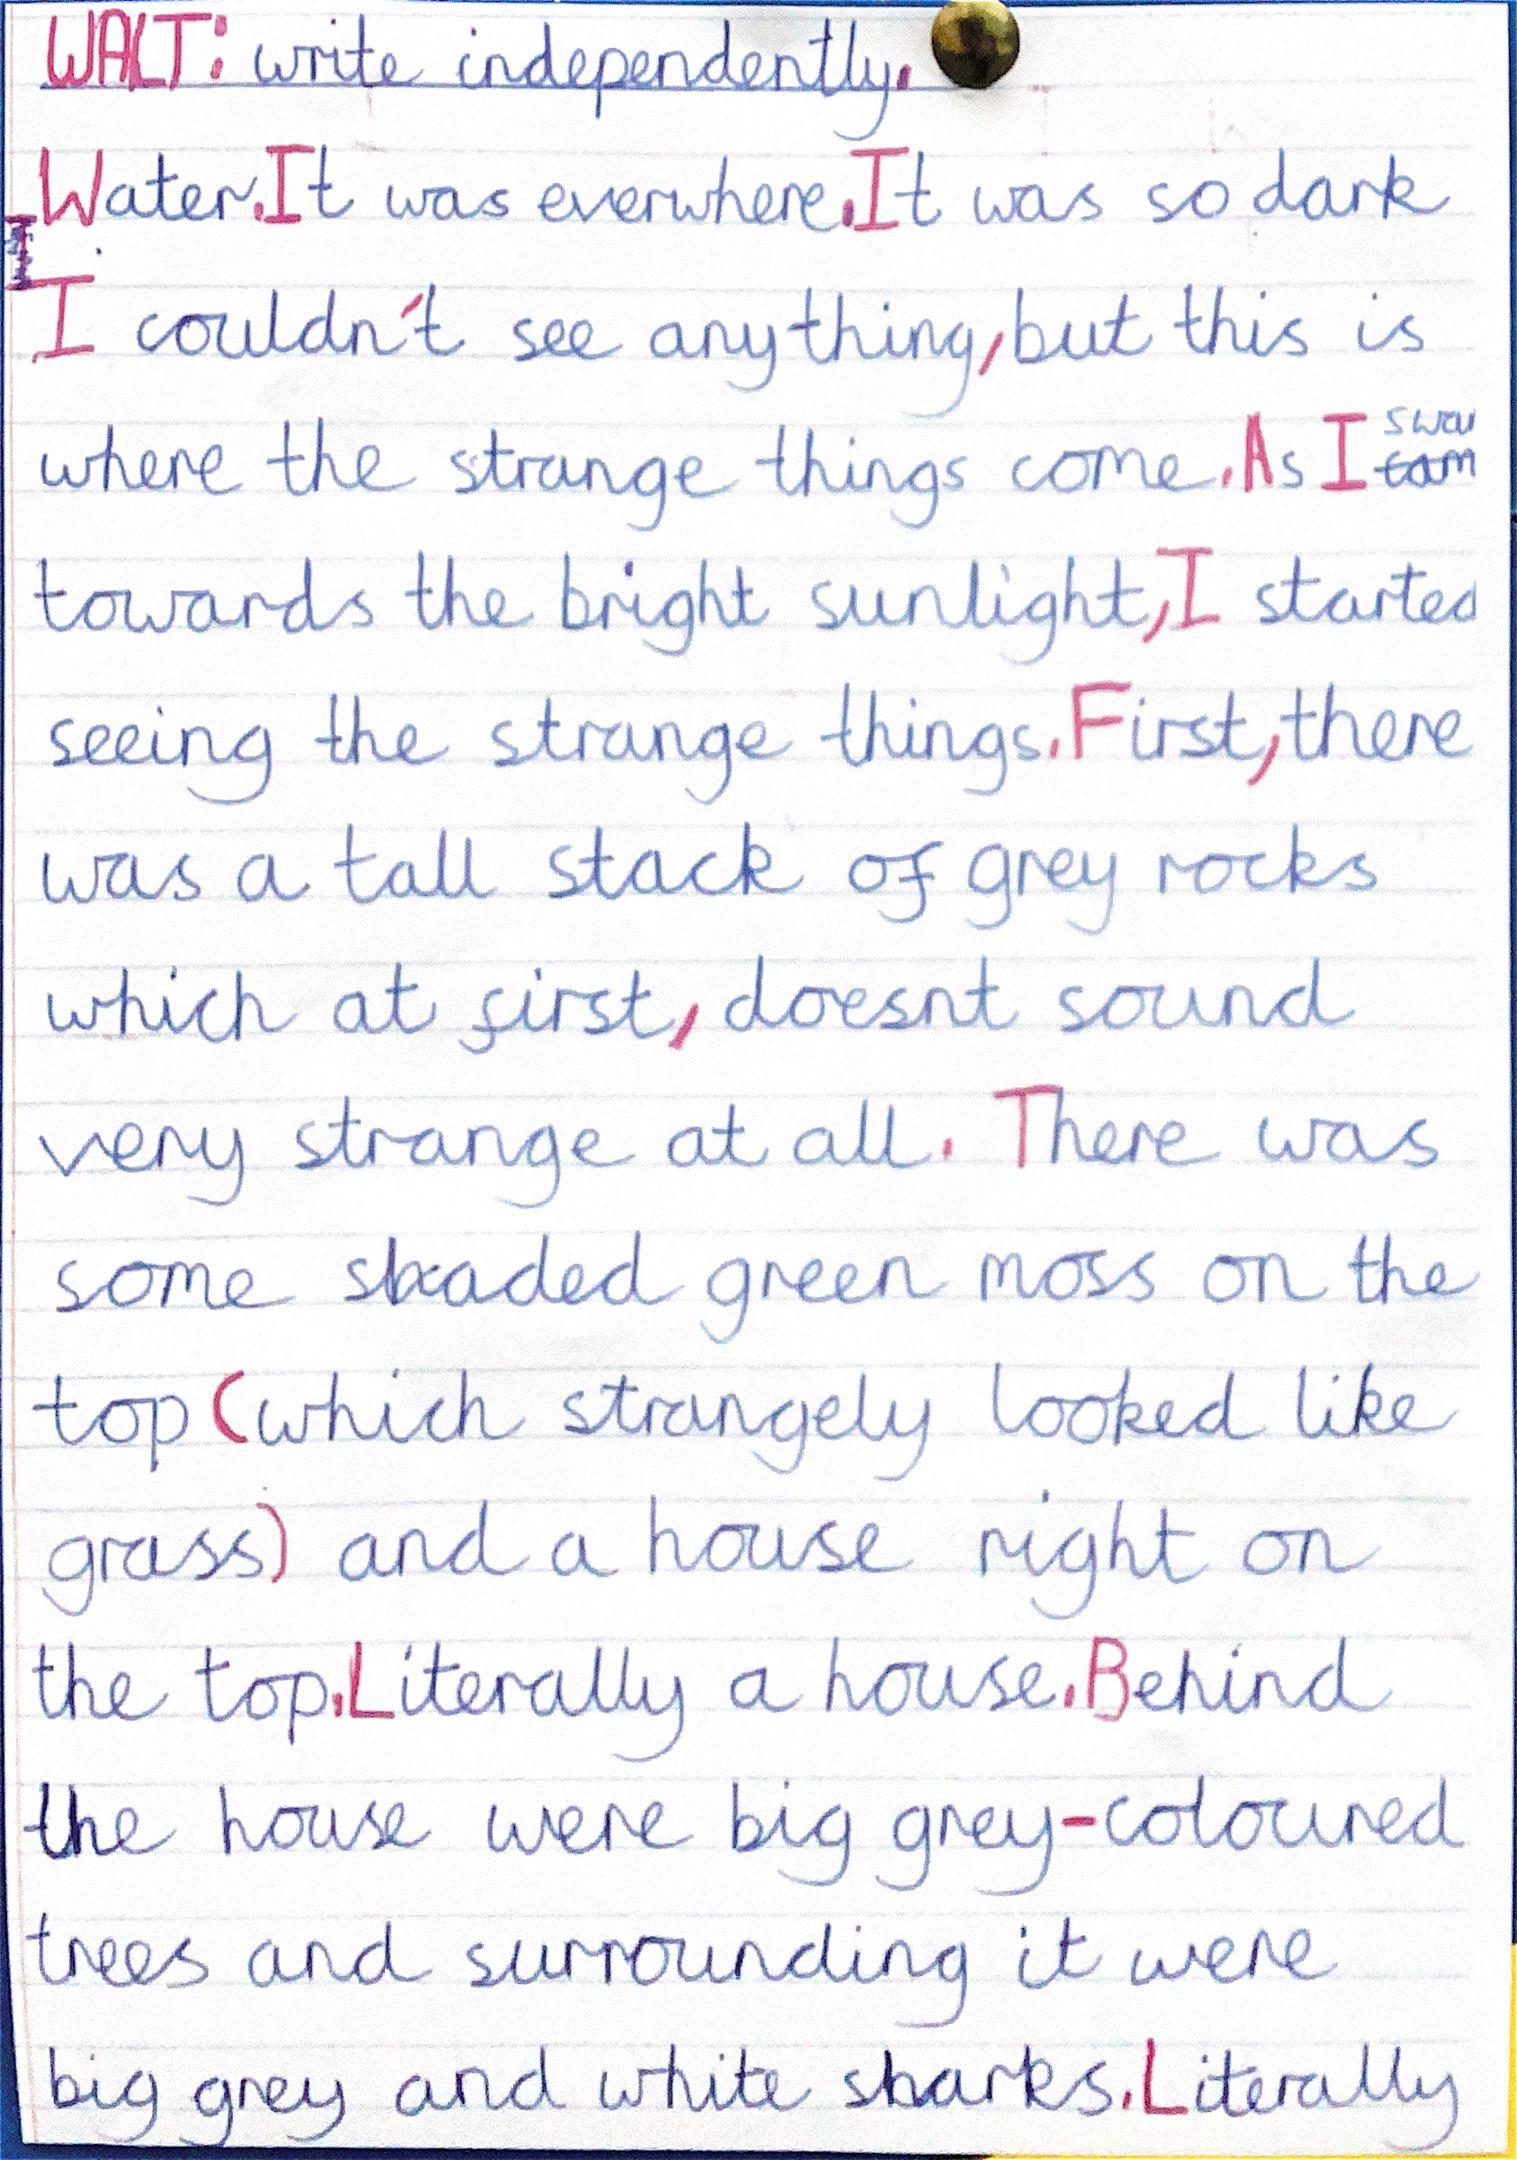 WALT: write independently.
Water. It was everwhere. It was so dark
I couldn't see anything, but this is
where the strange things come. As I swa
towards the bright sunlight, I started
seeing the strange things. First, there
was a tall stack of grey rocks
which at first, doesnt sound
very strange at all. There was
some shaded green moss on the
top (which strangely looked like
grass) and a house right on
the top. Literally a house. Behind
the house were big grey-coloured
trees and surrounding it were
big grey and white sharks. Literally